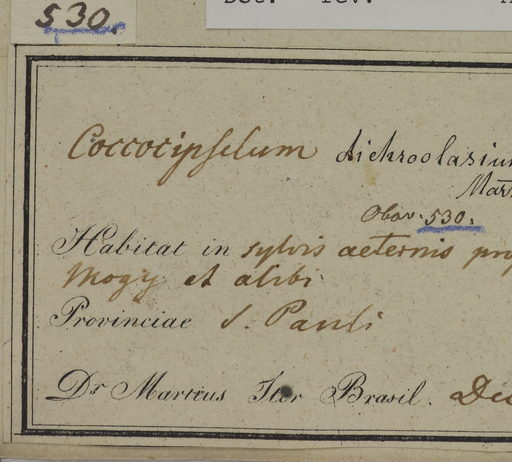 530.
Det. rev.
Coccocipselum dichroolasium
Mart
Obser. 530.
Habitat in sylvis aeternis prop
Mogy et alibi
Provinciae S. Pauli
Dr Martius Iter Brasil. Dec